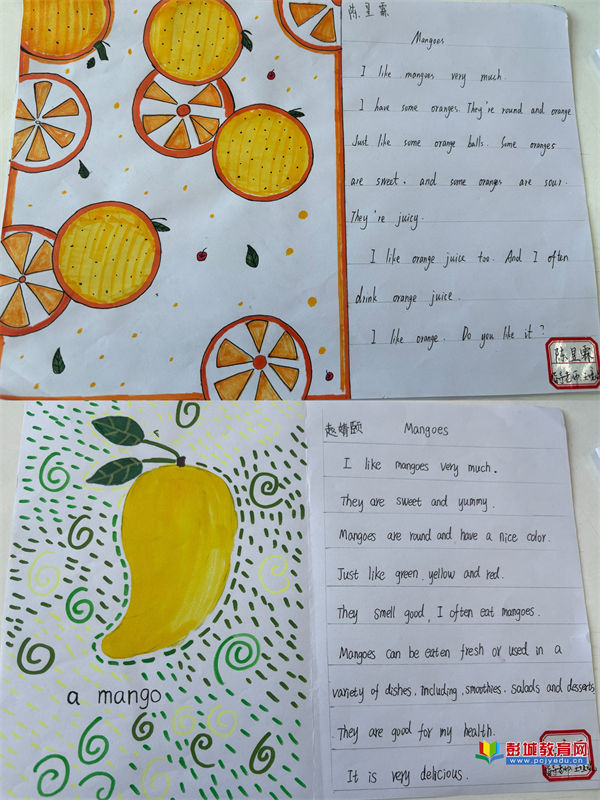 陈昱霖
Mangoes
I like mangoes very much.
I have some oranges. They're round and orange
Just like some orange balls. Some oranges
are sweet. and some oranges are sour.
They're juicy.
I like orange juice too. And I often
drink orange juice.
I like orange. Do you like it?
陈昱霖
赵婧颐 Mangoes
I like mangoes very much.
They are sweet and yummy.
Mangoes are round and have a nice color.
Just like green, yellow and red.
They smell good, I often eat mangoes.
Mangoes can be eaten fresh or used in a
variety of dishes, including, smoothies, salads and desserts
They are good for my health.
It is very delicious.
a mango
彭城教育网
www.pcjyedu.cn